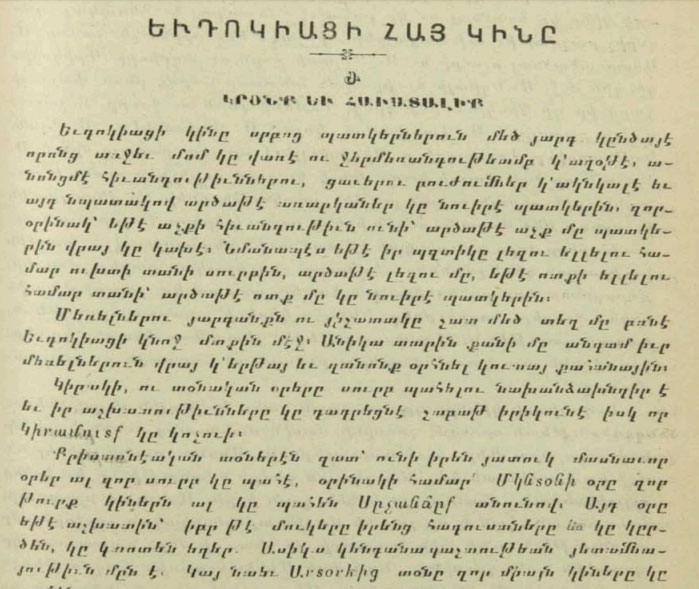 ԵՒԴՈԿԻԱՑԻ ՀԱՅ ԿԻՆԸ
Զ
ԿՐՕՆՔ ԵՒ ՀԱՒԱՏԱԼԻՔ
Եւդոկիացի կինը սրբոց պատկերներուն մեծ յարգ կընծայէ
որոնց առջեւ մոմ կը վառէ ու ջերմեռանդութեամբ կ՚աղօթէ, ա-
նոնցմէ հիւանդութիւններու, ցաւերու բուժումներ կ՚ակնկալէ եւ
այդ նպատակով արծաթէ առարկաներ կը նուիրէ պատկերին՝ զոր-
օրինակ՝ եթէ աչքի հիւանդութիւն ունի՝ արծաթէ աչք մը պատկե-
րին վրայ կը կախէ։ Նմանապէս եթէ իր պզտիկը լեզու ելլելու հա-
մար ուխտի տանի սուրբին, արծաթէ լեզու մը, եթէ ոտքի ելլելու
համար տանի՝ արծաթէ ոտք մը կը նուիրէ պատկերին։
Մեռելներու յարգանքն ու յիշատակը շատ մեծ տեղ մը բռնէ
Եւդոկիացի կնոջ մտքին մէջ։ Անիկա տարին քանի մը անգամ իւր
մեռելներուն վրայ կ՚երթայ եւ զանոնք օրհնել կուտայ քահանային։
Կիրակի, ու տօնական օրերը սուրբ պահելու նախանձախնդիր է
եւ իր աշխատութիւնները կը դադրեցնէ շաբաթ իրիկունէ իսկ որ
Կիրամուտք կը կոչուի։
Քրիստոնէական տօներէն զատ՝ ունի իրեն յատուկ մասնաւոր
օրեր ալ զոր սուրբ կը պահէ, օրինակի համար՝ Մկնտօնի օրը զոր
թուրք կիներն ալ կը պահեն անունով։ Այդ օրը
եթէ աշխատին՝ իբր թէ մուկերը իրենց հագուստները կը կըր-
ծեն, կը կտոտեն եղեր. Ասիկա կենդանապաշտութեան յետամնա-
ցութիւն մըն է. Կայ նաեւ տօնը զոր միայն կիները կը